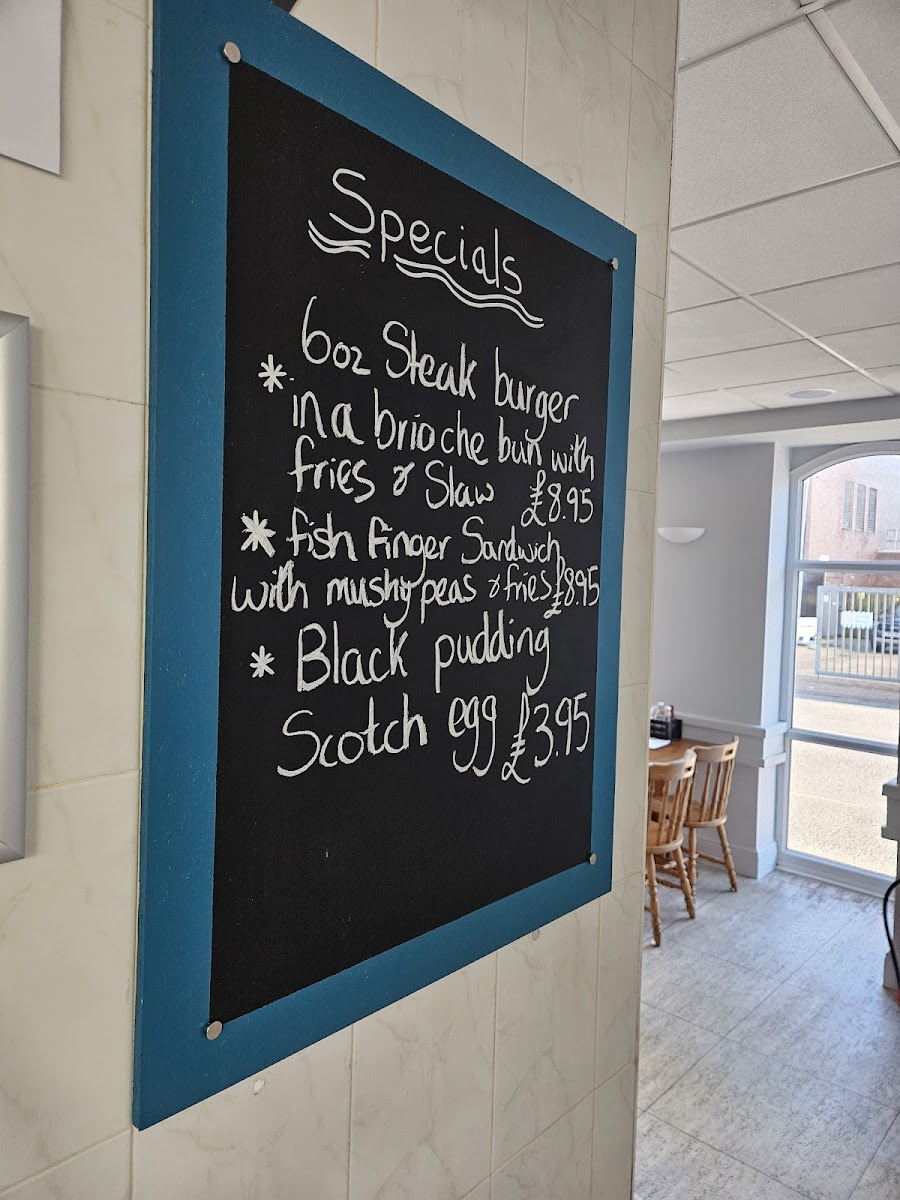 Specials
6oz Steak burger
* in a brioche bun with
fries & Slaw £8.95
* fish finger Sandwich
with mushy peas & fries £8.95
* Black pudding
Scotch egg £3.95